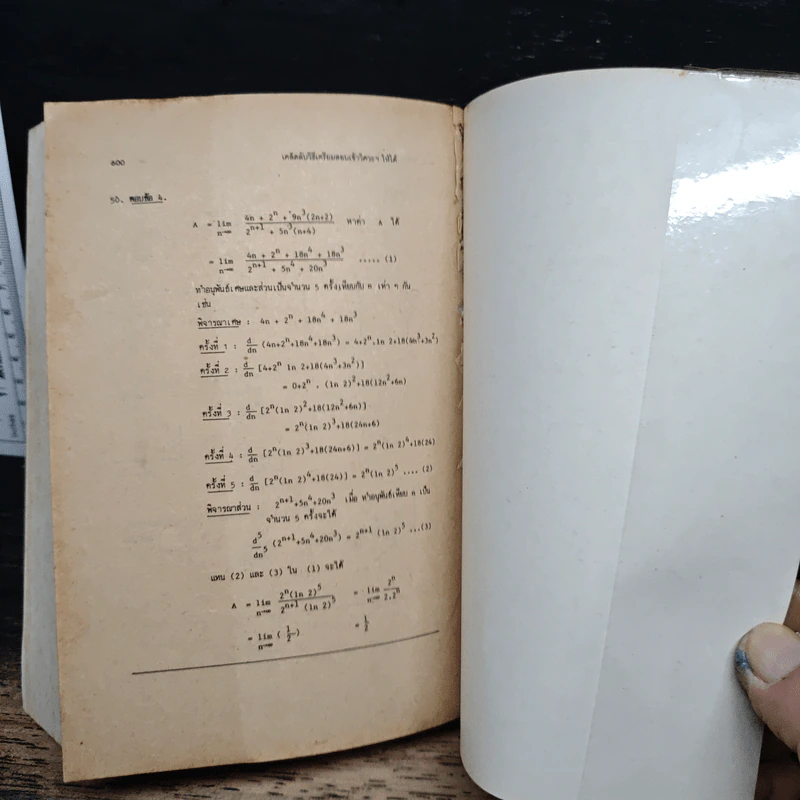 600 เคล็ดลับวิธีเตรียมสอบเข้าวิศวะฯ ให้ได้
50. ตอบข้อ 4.
A = lim n→∞ (4n + 2^n + 9n^3(2n+2)) / (2^{n+1} + 5n^3(n+4)) หาค่า A ได้
= lim n→∞ (4n + 2^n + 18n^4 + 18n^3) / (2^{n+1} + 5n^4 + 20n^3) ..... (1)
หาอนุพันธ์เศษและส่วนเป็นจำนวน 5 ครั้งเทียบกับ n เท่า ๆ กัน
เช่น
พิจารณาเศษ : 4n + 2^n + 18n^4 + 18n^3
ครั้งที่ 1 : d/dn (4n+2^n+18n^4+18n^3) = 4+2^n.ln 2+18(4n^3+3n^2)
ครั้งที่ 2 : d/dn [4+2^n ln 2+18(4n^3+3n^2)]
= 0+2^n . (ln 2)^2+18(12n^2+6n)
ครั้งที่ 3 : d/dn [2^n(ln 2)^2+18(12n^2+6n)]
= 2^n(ln 2)^3+18(24n+6)
ครั้งที่ 4 : d/dn [2^n(ln 2)^3+18(24n+6)] = 2^n(ln 2)^4+18(24)
ครั้งที่ 5 : d/dn [2^n(ln 2)^4+18(24)] = 2^n(ln 2)^5 .... (2)
พิจารณาส่วน : 2^{n+1}+5n^4+20n^3 เมื่อ หาอนุพันธ์เทียบ n เป็น
จำนวน 5 ครั้งจะได้
d^5/dn^5 (2^{n+1}+5n^4+20n^3) = 2^{n+1} (ln 2)^5 ...(3)
แทน (2) และ (3) ใน (1) จะได้
A = lim n→∞ 2^n(ln 2)^5 / 2^{n+1} (ln 2)^5 = lim n→∞ 2^n / 2.2^n
= lim n→∞ (1/2) = 1/2